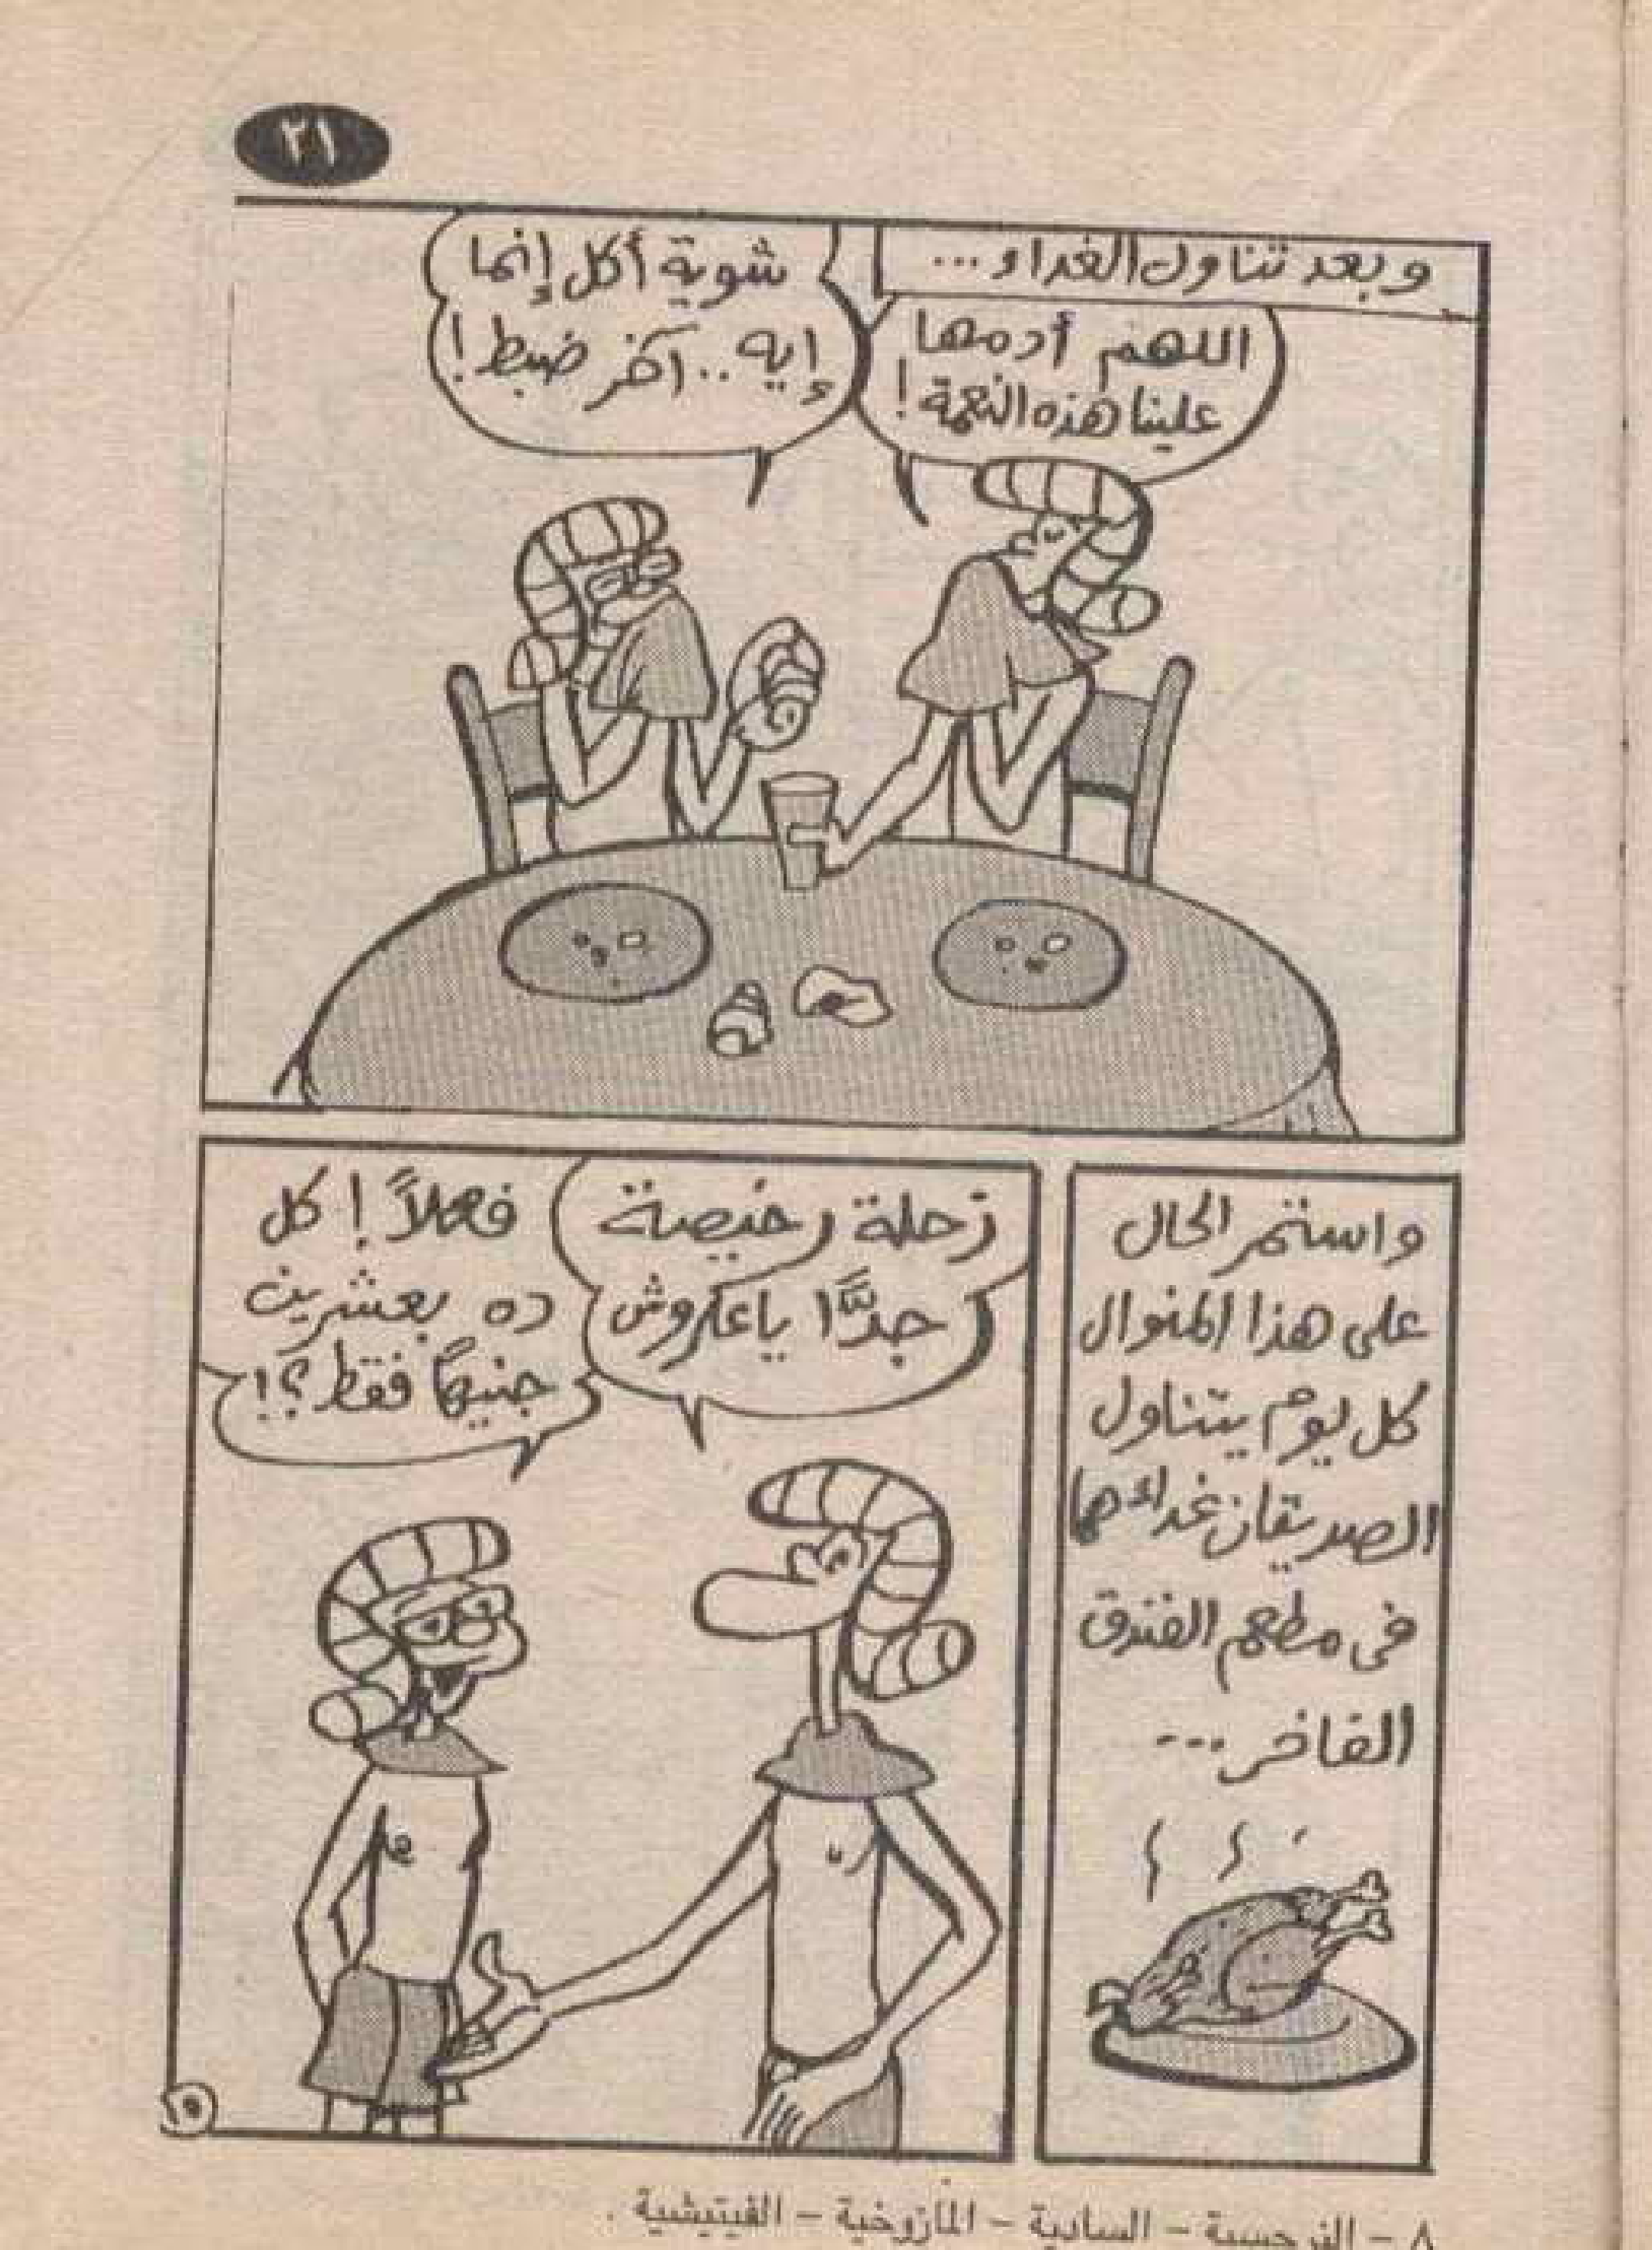 ٢١
وبعد تناول الغداء...
اللهم أدمها
علينا هذه النعمة!
شوية أكل إنما
إيه.. آخر ضبط!
واستمر الحال
على هذا المنوال
كل يوم يتناول
الصديقان غداءهما
فى مطعم الفندق
الفاخر...
رحلة رخيصة
جدًّا ياعكروش
فعلاً! كل
ده بعشرين
جنيهًا فقط؟!
٨ - النرجسية - السادية - المازوخية - الفيتيشية .